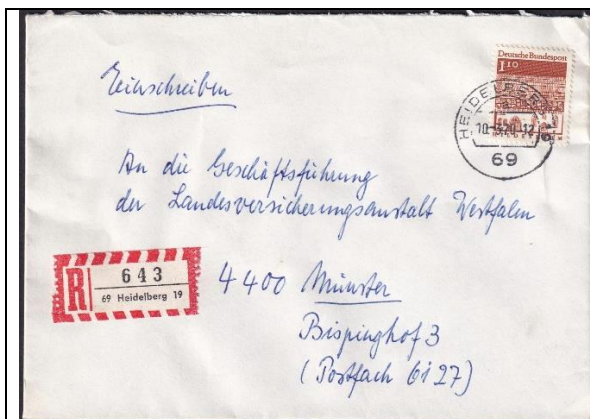 Einschreiben
Deutsche Bundespost
110
HEIDELBERG
69
An die Geschäftsführung
der Landesversicherungsanstalt Westfalen
R
643
69 Heidelberg 19
4400 Münster
Bispinghof 3
(Postfach 6127)